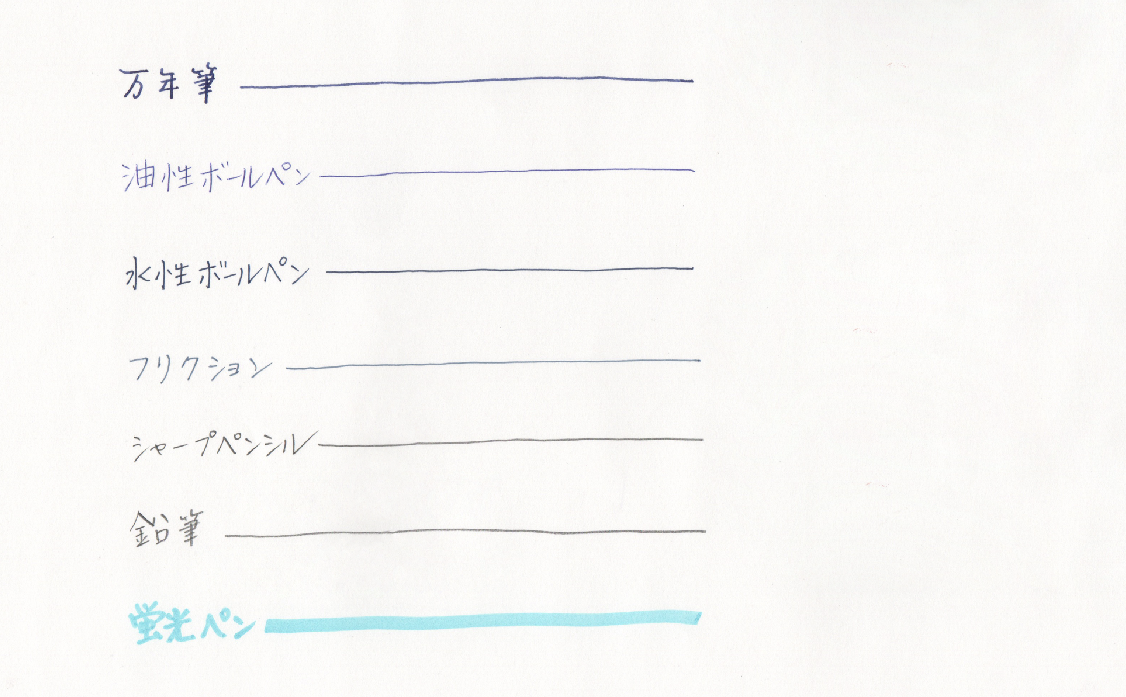 万年筆
油性ボールペン
水性ボールペン
フリクション
シャープペンシル
鉛筆
蛍光ペン